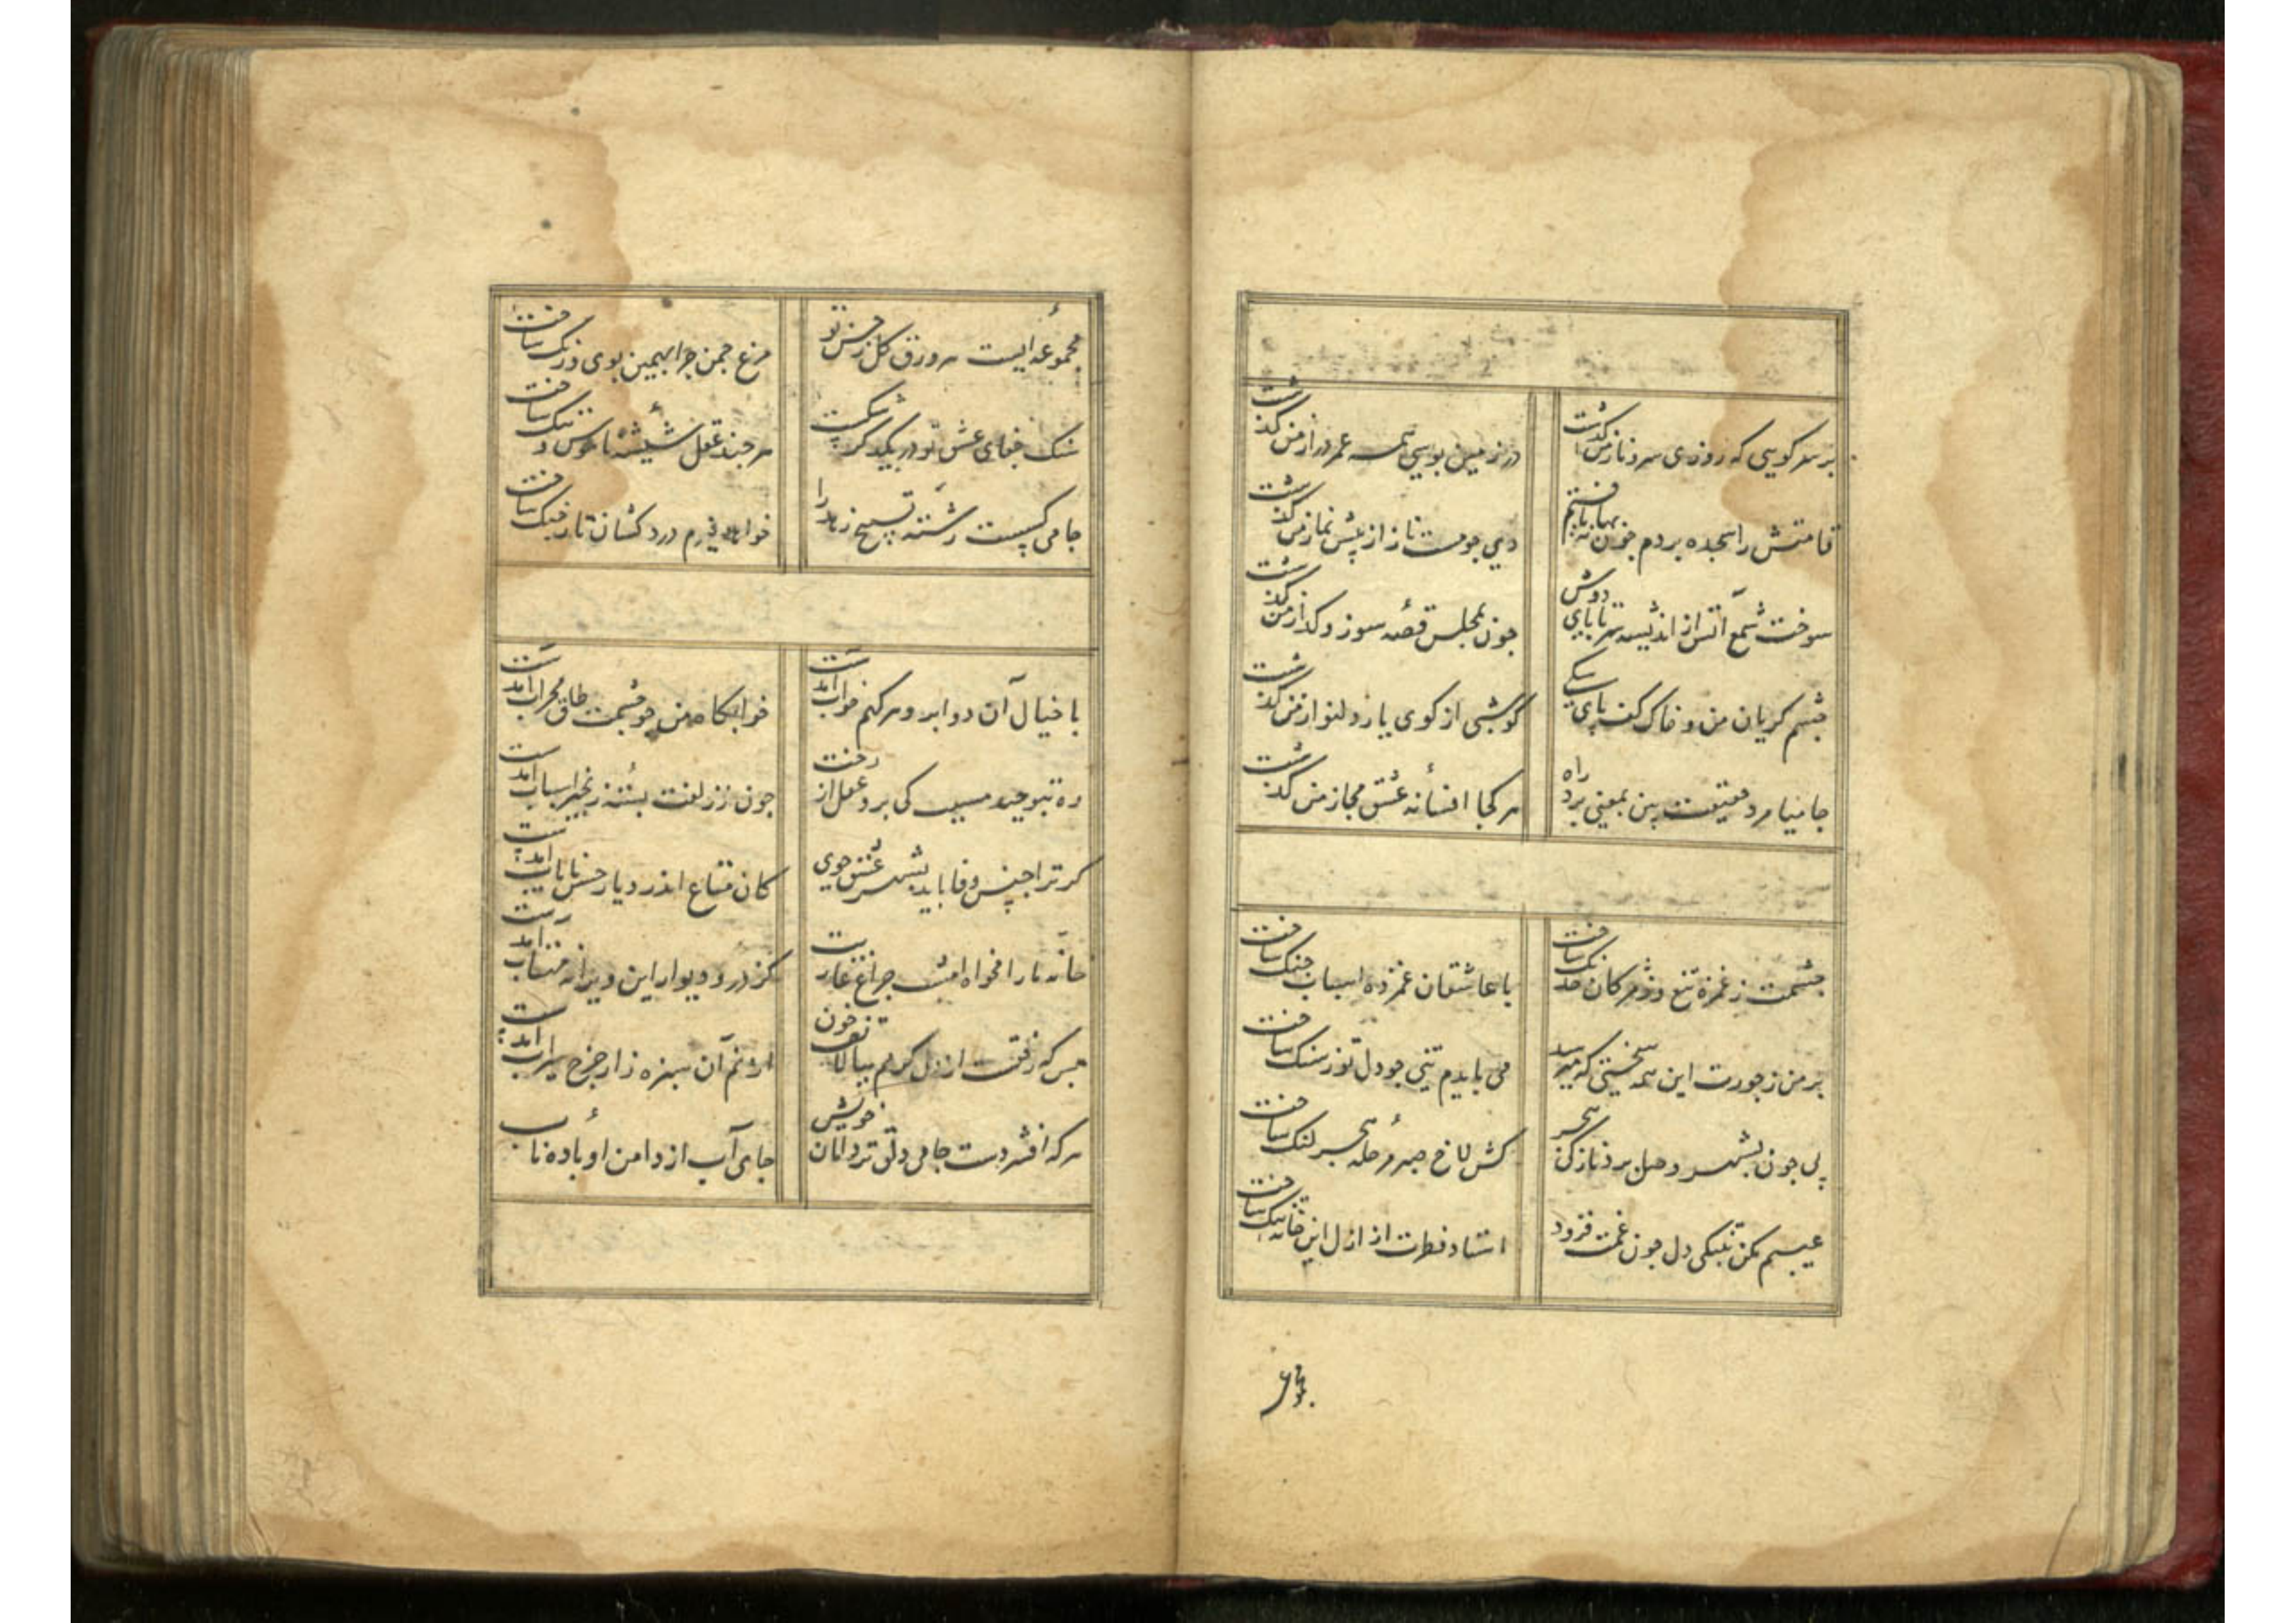 بر سر کویی که روزی سرو ناز من گذشت
در زمین بوسی همه عمر دراز من گذشت
قامتش را سجده بردم چون بها نیافتم
دی جو مست ناز از پیش نماز من گذشت
سوخت شمع آتش از اندیشه سر تا پای دوش
جون بمجلس قصه سوز و کداز من گذشت
چشم کریان من و خاک کف پای یکی
کو شبی از کوی یار دلنواز من گذشت
جامیا مرد حقیقت بین بمعنی برد راه
هر کجا افسانه عشق مجاز من گذشت
چشمت ز غمزه تیغ و ز مژکان خدنک ساخت
با عاشقان غمزده اسباب جنک ساخت
بر من ز جورت این همه سختی که میرسد
می بایدم تنی جو دل تو ز سنک ساخت
پی جون بشهر وصل برد ناز کی هجر
کش لاخ صبر مرحله هجر لنک ساخت
عیبم مکن بتنکی دل جون غمت فزود
استاد فطرت از ازل این خانه تنک ساخت
مجموعه
مجموعه ایست هر ورق کل ز حسن تو
مرغ جمن جرا بهمین بوی و رنک ساخت
سنک جفای عشق تو در یکدکر شکست
هر چند عقل شیشه ناموس و ننک ساخت
جامی کسست رشته تسبیح زهد را
خواهد برم درد کشان تار جنک ساخت
با خیال آن دو ابرو هر کهم خواب آمدست
خوابکاه من جو چشمت طاق محراب آمدست
ره بتو جید مسبب کی برد عقل از رخت
جون ز زلفت بسته زنجیر اسباب آمدست
کر ترا جنس وفا باید بشهر عشق جوی
کان متاع اندر دیار حسن نایاب آمدست
خانه ما را مخواه امشب جراغ عاریت
کز در و دیوار این ویرانه مهتاب آمدست
بس که رفت از دل کرم ببالا تف خون
از نم آن سبزه زار جرخ سیراب آمدست
هر که افشردست جامی دلق تر دامان خویش
جای آب از دامن او باده ناب